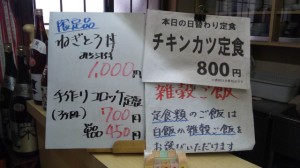 限定品
ねぎとろ丼
みそ汁付
1,000円
手作りコロッケ定食
(3ヶ)
700円
単品
450円
本日の日替わり定食
チキンカツ定食
800円
雑穀ご飯
定食類のご飯は
白飯か雑穀ご飯を
お選びいただけます